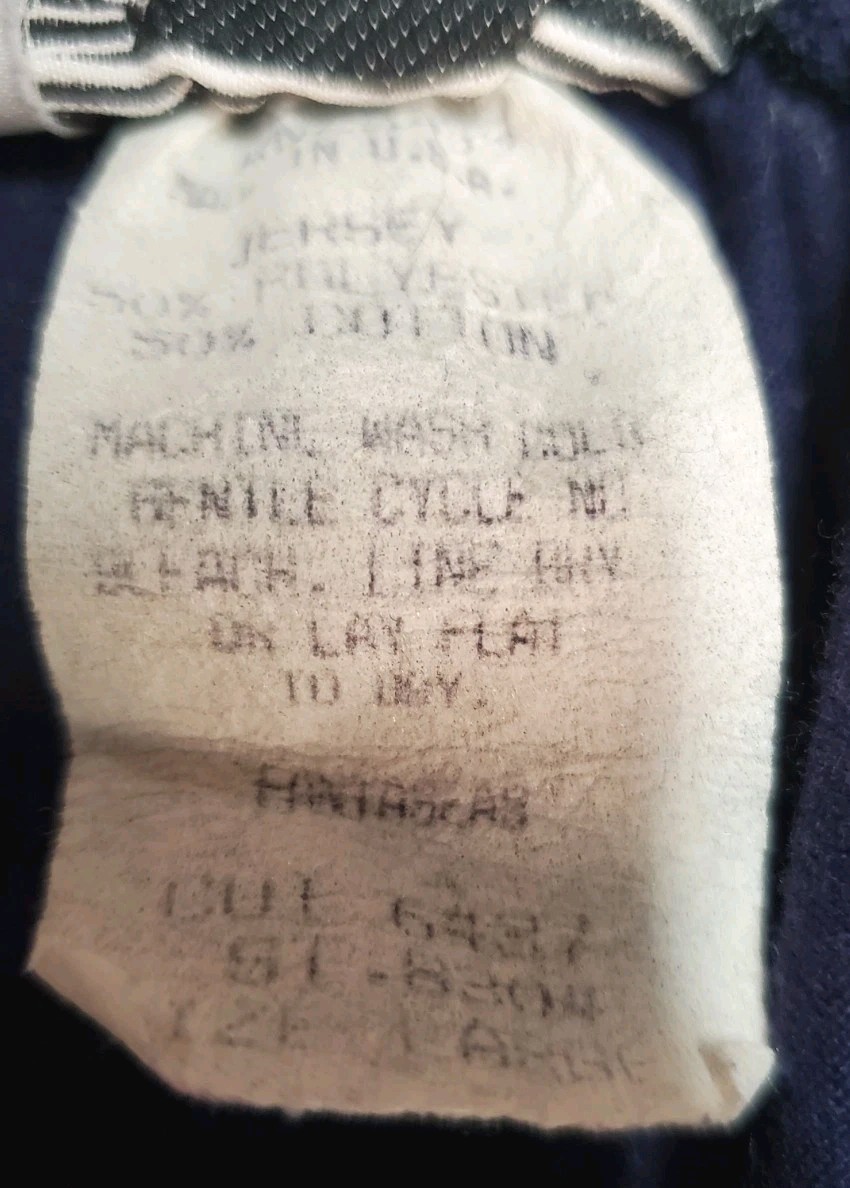 IN U.S.A.
JERSEY
50% POLYESTER
50% COTTON
MACHINE WASH COLD
GENTLE CYCLE NO
BLEACH. LINE DRY
OR LAY FLAT
TO DRY.
CUT 6437
ST.
IZE LARGE